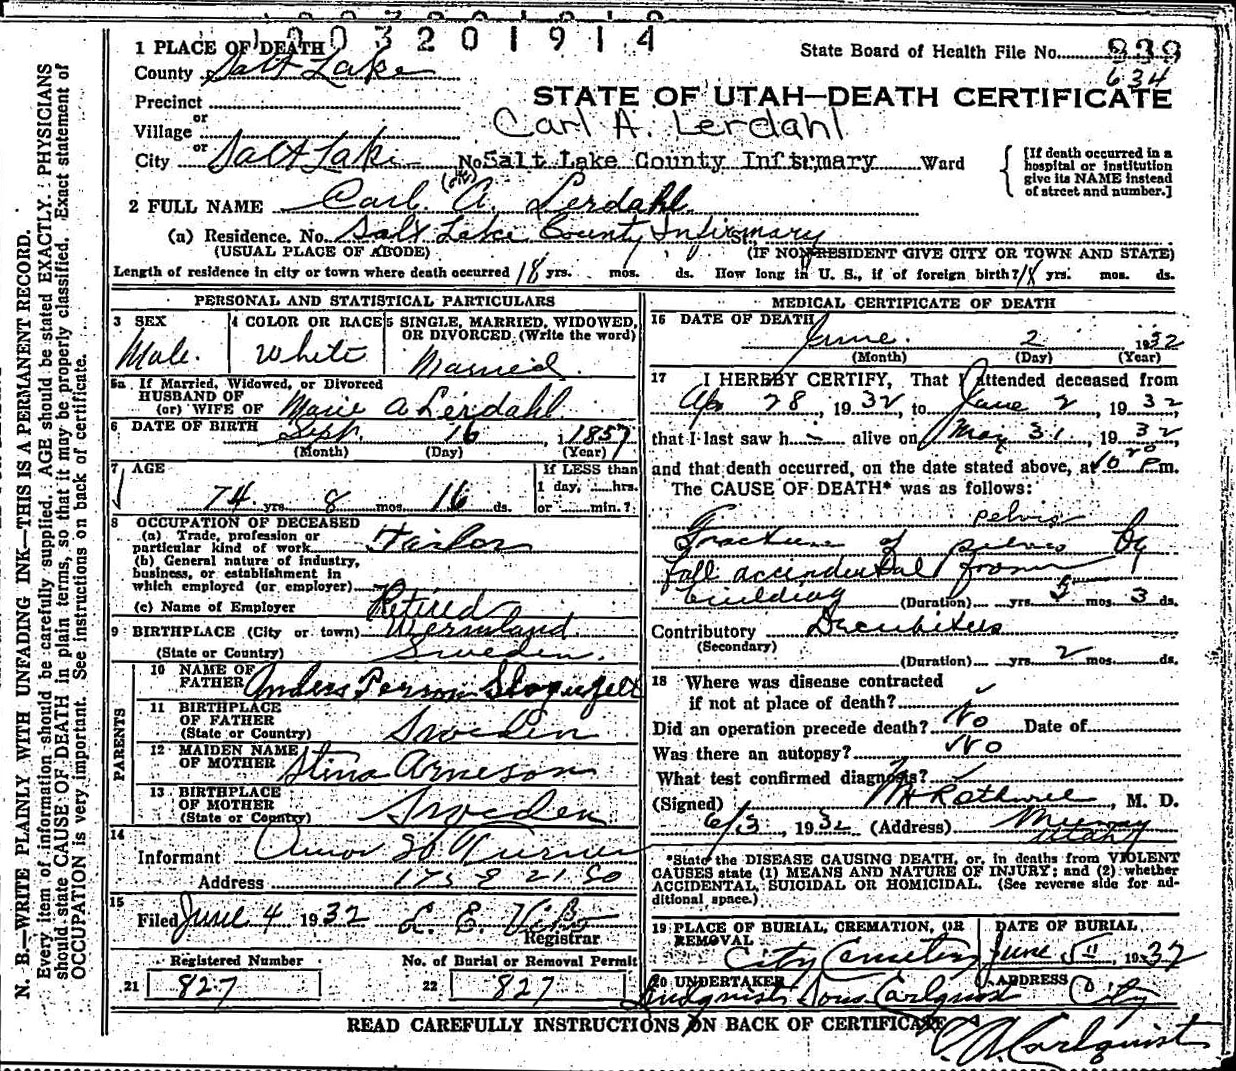 1003201914
1 PLACE OF DEATH
State Board of Health File No. 839
County Salt Lake
634
Precinct
STATE OF UTAH—DEATH CERTIFICATE
or
Village
Carl A. Lerdahl
or
City Salt Lake No. Salt Lake County Infirmary Ward
[If death occurred in a hospital or institution give its NAME instead of street and number.]
2 FULL NAME Carl A. Lerdahl
(a) Residence. No. Salt Lake County Infirmary St.
(USUAL PLACE OF ABODE) (IF NON-RESIDENT GIVE CITY OR TOWN AND STATE)
Length of residence in city or town where death occurred 18 yrs. mos. ds. How long in U. S., if of foreign birth? 18 yrs. mos. ds.
PERSONAL AND STATISTICAL PARTICULARS
3 SEX
Male.
4 COLOR OR RACE
White
5 SINGLE, MARRIED, WIDOWED, OR DIVORCED (Write the word)
Married
5a If Married, Widowed, or Divorced
HUSBAND OF
(or) WIFE OF Marie A Lerdahl
6 DATE OF BIRTH Sept. 16, 1 1857
(Month) (Day) (Year)
7 AGE
If LESS than
1 day, hrs.
74 yrs. 8 mos. 16 ds. or min.?
8 OCCUPATION OF DECEASED
(a) Trade, profession or
particular kind of work Tailor
(b) General nature of industry,
business, or establishment in
which employed (or employer)
(c) Name of Employer Retired
9 BIRTHPLACE (City or town) Wermland
(State or Country) Sweden.
PARENTS
10 NAME OF
FATHER Anders Person
11 BIRTHPLACE
OF FATHER
(State or Country) Sweden
12 MAIDEN NAME
OF MOTHER Stina Arneson
13 BIRTHPLACE
OF MOTHER
(State or Country) Sweden
14
Informant Turner
Address 175 E 21 So
15
Filed June 4 1932
Registrar
Registered Number
No. of Burial or Removal Permit
21 827
22 827
MEDICAL CERTIFICATE OF DEATH
16 DATE OF DEATH
June. 2 1932
(Month) (Day) (Year)
17 I HEREBY CERTIFY, That I attended deceased from
Apr 28, 1932, to June 2, 1932,
that I last saw h alive on May 31, 1932,
and that death occurred, on the date stated above, at Pm.
The CAUSE OF DEATH* was as follows:
pelvis
Fracture of pelvis by
fall accindental from
building (Duration) yrs. 5 mos. 3 ds.
Contributory Decubitus
(Secondary)
(Duration) yrs. 2 mos. ds.
18 Where was disease contracted
if not at place of death?
Did an operation precede death? No Date of
Was there an autopsy? No
What test confirmed diagnosis?
(Signed) Rothwell, M. D.
6/3, 1932 (Address) Murray
Utah
*State the DISEASE CAUSING DEATH, or, in deaths from VIOLENT
CAUSES state (1) MEANS AND NATURE OF INJURY; and (2) whether
ACCIDENTAL, SUICIDAL OR HOMICIDAL. (See reverse side for additional space.)
19 PLACE OF BURIAL, CREMATION, OR
REMOVAL
City Cemetery
DATE OF BURIAL
June 5", 1932
20 UNDERTAKER
Lindquist Sons Carlquist
ADDRESS
City
READ CAREFULLY INSTRUCTIONS ON BACK OF CERTIFICATE
C. A. Carlquist
N. B.—WRITE PLAINLY WITH UNFADING INK—THIS IS A PERMANENT RECORD.
Every item of information should be carefully supplied. AGE should be stated EXACTLY. PHYSICIANS
should state CAUSE OF DEATH in plain terms, so that it may be properly classified. Exact statement of
OCCUPATION is very important. See instructions on back of certificate.